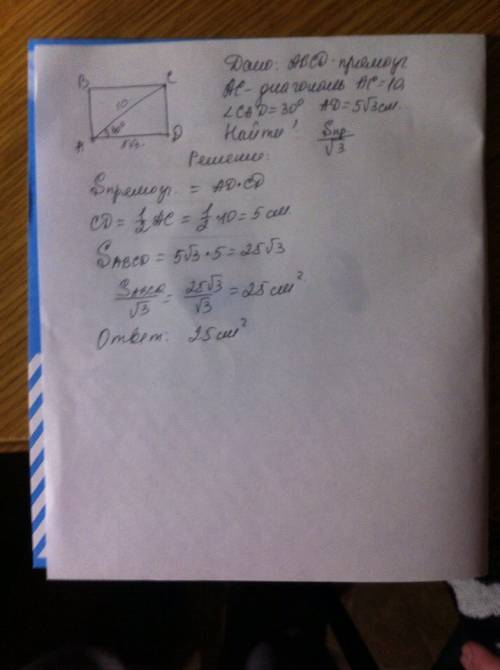 Дано: ABCD - прямоуг
AC - диагональ AC = 10,
∠CAD = 30° AD = 5√3 см.
Найти: Sпр/√3
B C
10
30°
A 5√3 D
Решение:
Sпрямоуг. = AD • CD
CD = 1/2 AC = 1/2 • 10 = 5 см
SABCD = 5√3 • 5 = 25√3
SABCD/√3 = 25√3/√3 = 25 см²
Ответ: 25 см²